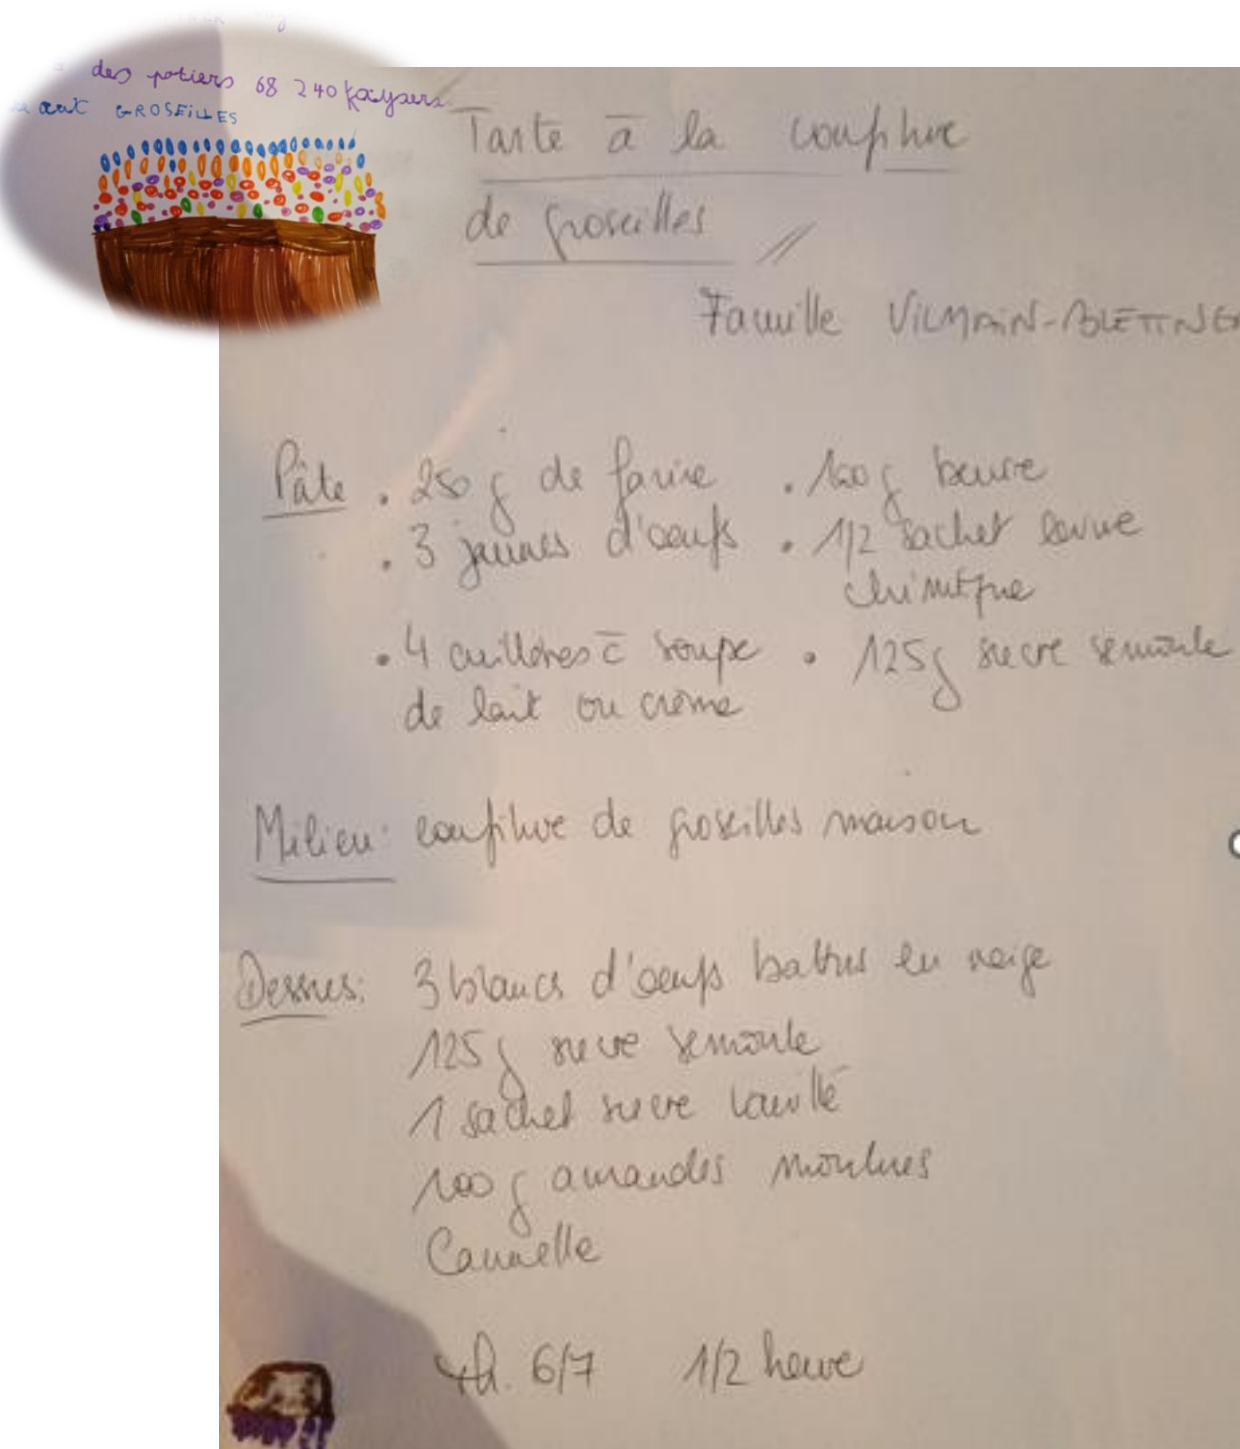 des potiers 68 240 Kaysers
aux GROSEILLES
Tarte à la confiture
de groseilles
Famille VILMAIN-BLETTNER
Pâte . 250 g de farine . 100 g beurre
. 3 jaunes d'oeufs . 1/2 sachet levure
chimique
. 4 cuillères à soupe . 125g sucre semoule
de lait ou crème
Milieu: confiture de groseilles maison
Dessus: 3 blancs d'oeufs battus en neige
125g sucre semoule
1 sachet sucre vanillé
100 g amandes moulues
Cannelle
th. 6/7 1/2 heure